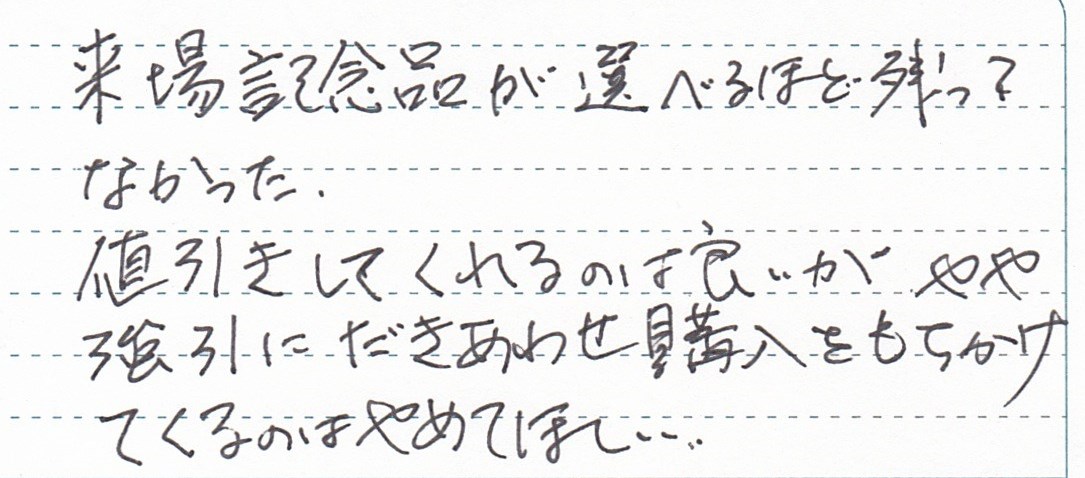 来場記念品が選べるほど残って
なかった.
値引きしてくれるのは良いが やや
強引にだきあわせ購入をもちかけ
てくるのはやめてほしい…